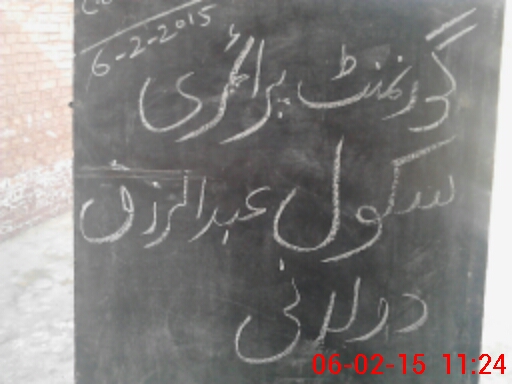 6-2-2015
گورنمنٹ پرائمری
سکول عبدالرزاق
06-02-15 11:24